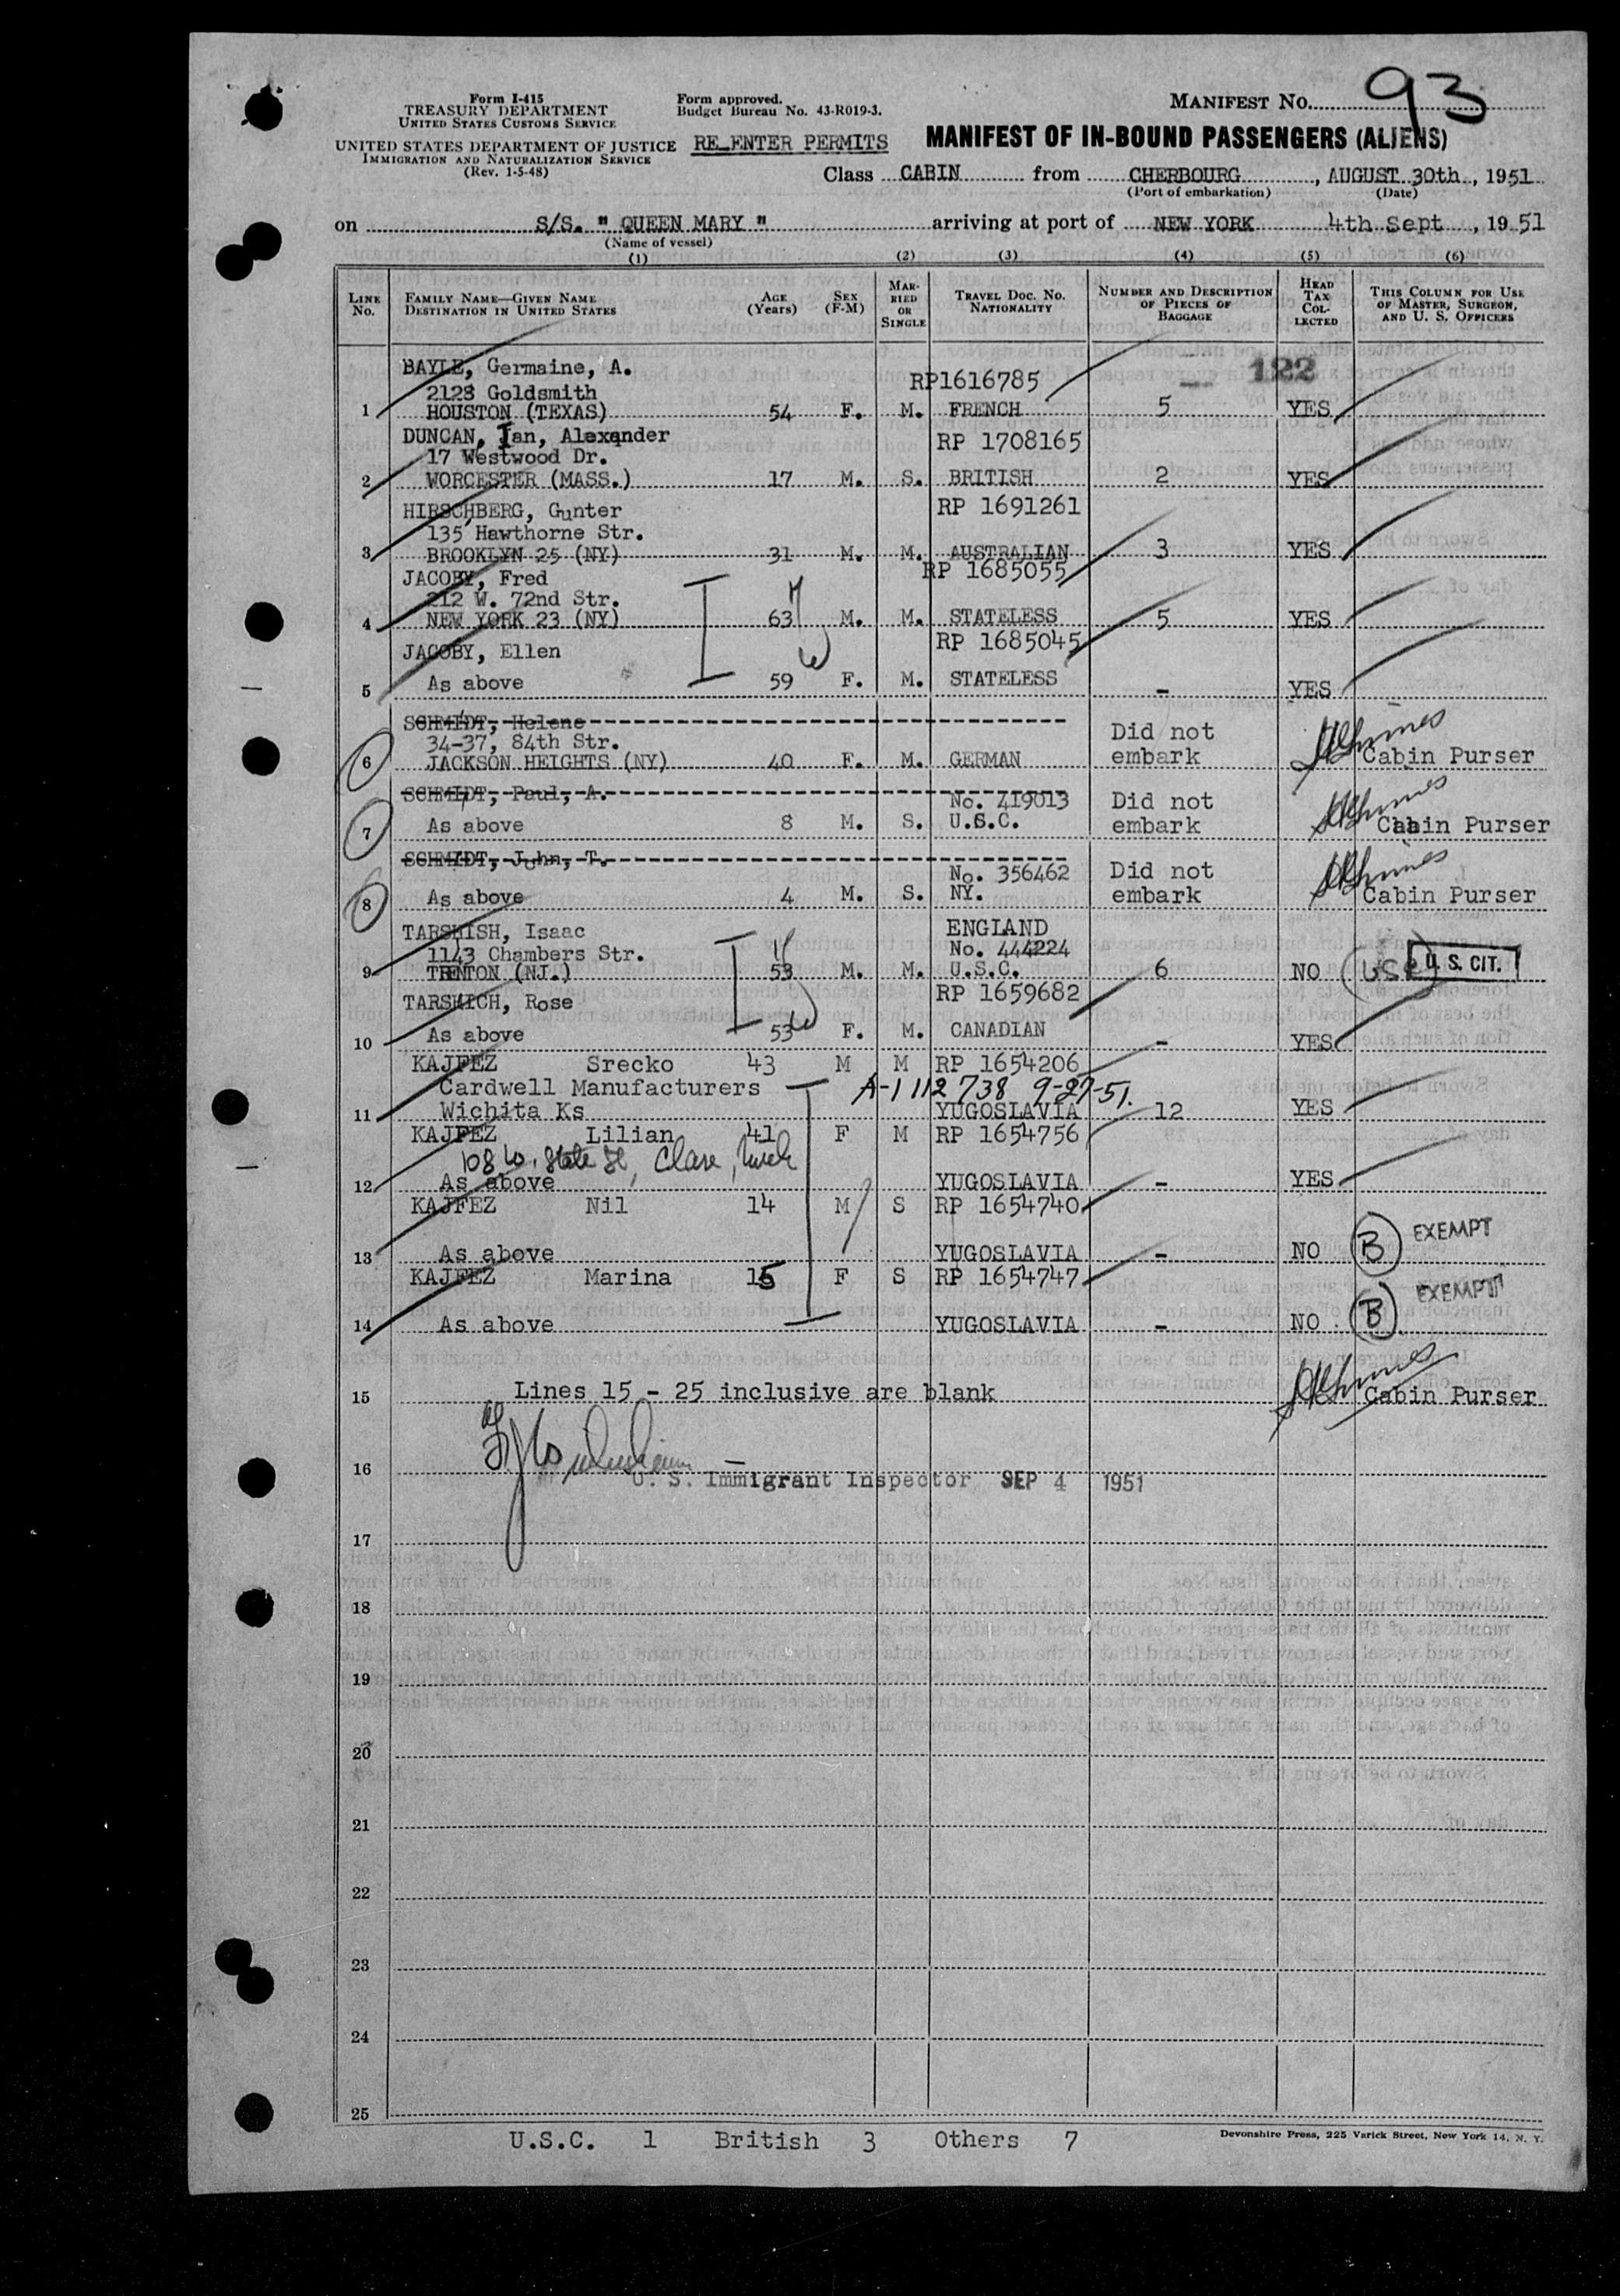 Form I-415
TREASURY DEPARTMENT
UNITED STATES CUSTOMS SERVICE
UNITED STATES DEPARTMENT OF JUSTICE
IMMIGRATION AND NATURALIZATION SERVICE
(Rev. 1-5-48)
Form approved.
Budget Bureau No. 43-R019-3.
RE_ENTER PERMITS
MANIFEST NO. 93
MANIFEST OF IN-BOUND PASSENGERS (ALIENS)
Class CABIN from CHERBOURG, AUGUST 30th, 1951
(Port of embarkation) (Date)
on S/S. " QUEEN MARY " arriving at port of NEW YORK 4th Sept, 1951
(Name of vessel)
(1) (2) (3) (4) (5) (6)
LINE No. FAMILY NAME—GIVEN NAME DESTINATION IN UNITED STATES AGE (Years) SEX (F-M) MARRIED OR SINGLE TRAVEL DOC. NO. NATIONALITY NUMBER AND DESCRIPTION OF PIECES OF BAGGAGE HEAD TAX COLLECTED THIS COLUMN FOR USE OF MASTER, SURGEON, AND U. S. OFFICERS
122
BAYLE, Germaine, A. RP1616785
2128 Goldsmith
1 HOUSTON (TEXAS) 54 F. M. FRENCH 5 YES
DUNCAN, Ian, Alexander RP 1708165
17 Westwood Dr.
2 WORCESTER (MASS.) 17 M. S. BRITISH 2 YES
HIRSCHBERG, Gunter RP 1691261
135 Hawthorne Str.
3 BROOKLYN 25 (NY) 31 M. M. AUSTRALIAN 3 YES
JACOBY, Fred RP 1685055
212 W. 72nd Str.
4 NEW YORK 23 (NY) 63 M. M. STATELESS 5 YES
JACOBY, Ellen RP 1685045
5 As above 59 F. M. STATELESS - YES
SCHMIDT, Helene
34-37, 84th Str. Did not
6 JACKSON HEIGHTS (NY) 40 F. M. GERMAN embark Cabin Purser
SCHMIDT, Paul, A. No. 419013 Did not
7 As above 8 M. S. U.S.C. embark Cabin Purser
SCHMIDT, John, T. No. 356462 Did not
8 As above 4 M. S. NY. embark Cabin Purser
TARSHISH, Isaac ENGLAND
1143 Chambers Str. No. 444224
9 TRENTON (NJ.) 53 M. M. U.S.C. 6 NO USC U. S. CIT.
TARSHICH, Rose RP 1659682
10 As above 53 F. M. CANADIAN - YES
KAJFEZ Srecko 43 M M RP 1654206
Cardwell Manufacturers A-1 112 738 9-27-51.
11 Wichita Ks YUGOSLAVIA 12 YES
KAJFEZ Lilian 41 F M RP 1654756
108 W. State St, Clare, Mich
12 As above YUGOSLAVIA - YES
KAJFEZ Nil 14 M S RP 1654740
13 As above YUGOSLAVIA - NO B EXEMPT
KAJFEZ Marina 15 F S RP 1654747
14 As above YUGOSLAVIA - NO B EXEMPT
15 Lines 15 - 25 inclusive are blank Cabin Purser
16
U. S. Immigrant Inspector SEP 4 1951
17
18
19
20
21
22
23
24
25
U.S.C. 1 British 3 Others 7
Devonshire Press, 225 Varick Street, New York 14, N. Y.